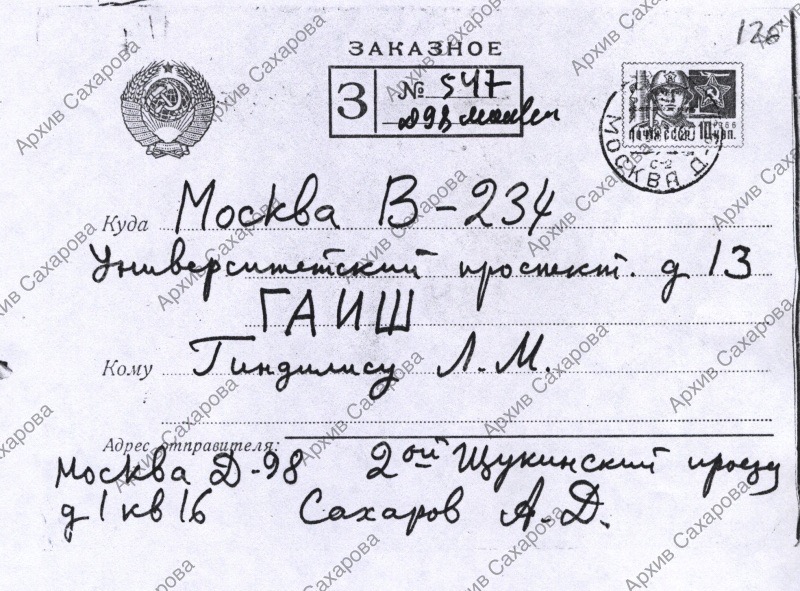 126
ЗАКАЗНОЕ
З № 547
Д98 Москвы
ПОЧТА СССР 1966 10 коп.
МОСКВА Д-
Куда Москва В-234
Университетский проспект. д 13
ГАИШ
Кому Гиндилису Л.М.
Адрес отправителя:
Москва Д-98 2ой Щукинский проезд
д 1 кв 16 Сахаров А.Д.
Архив Сахарова